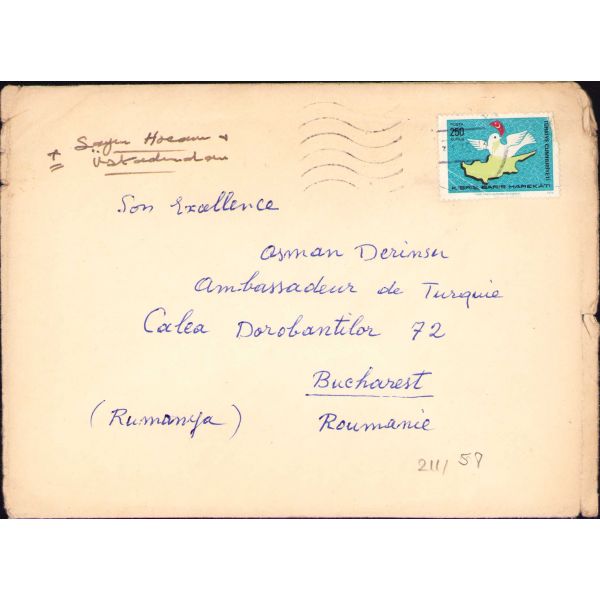 Sayın Hocam
Üstadımdan
POSTA
250
KURUŞ
TÜRKİYE CUMHURİYETİ
KIBRIS BARIŞ HAREKÂTI
Son Excellence
Osman Derinsu
Ambassadeur de Turquie
Calea Dorobantilor 72
Bucharest
(Rumanya) Roumanie
211/58